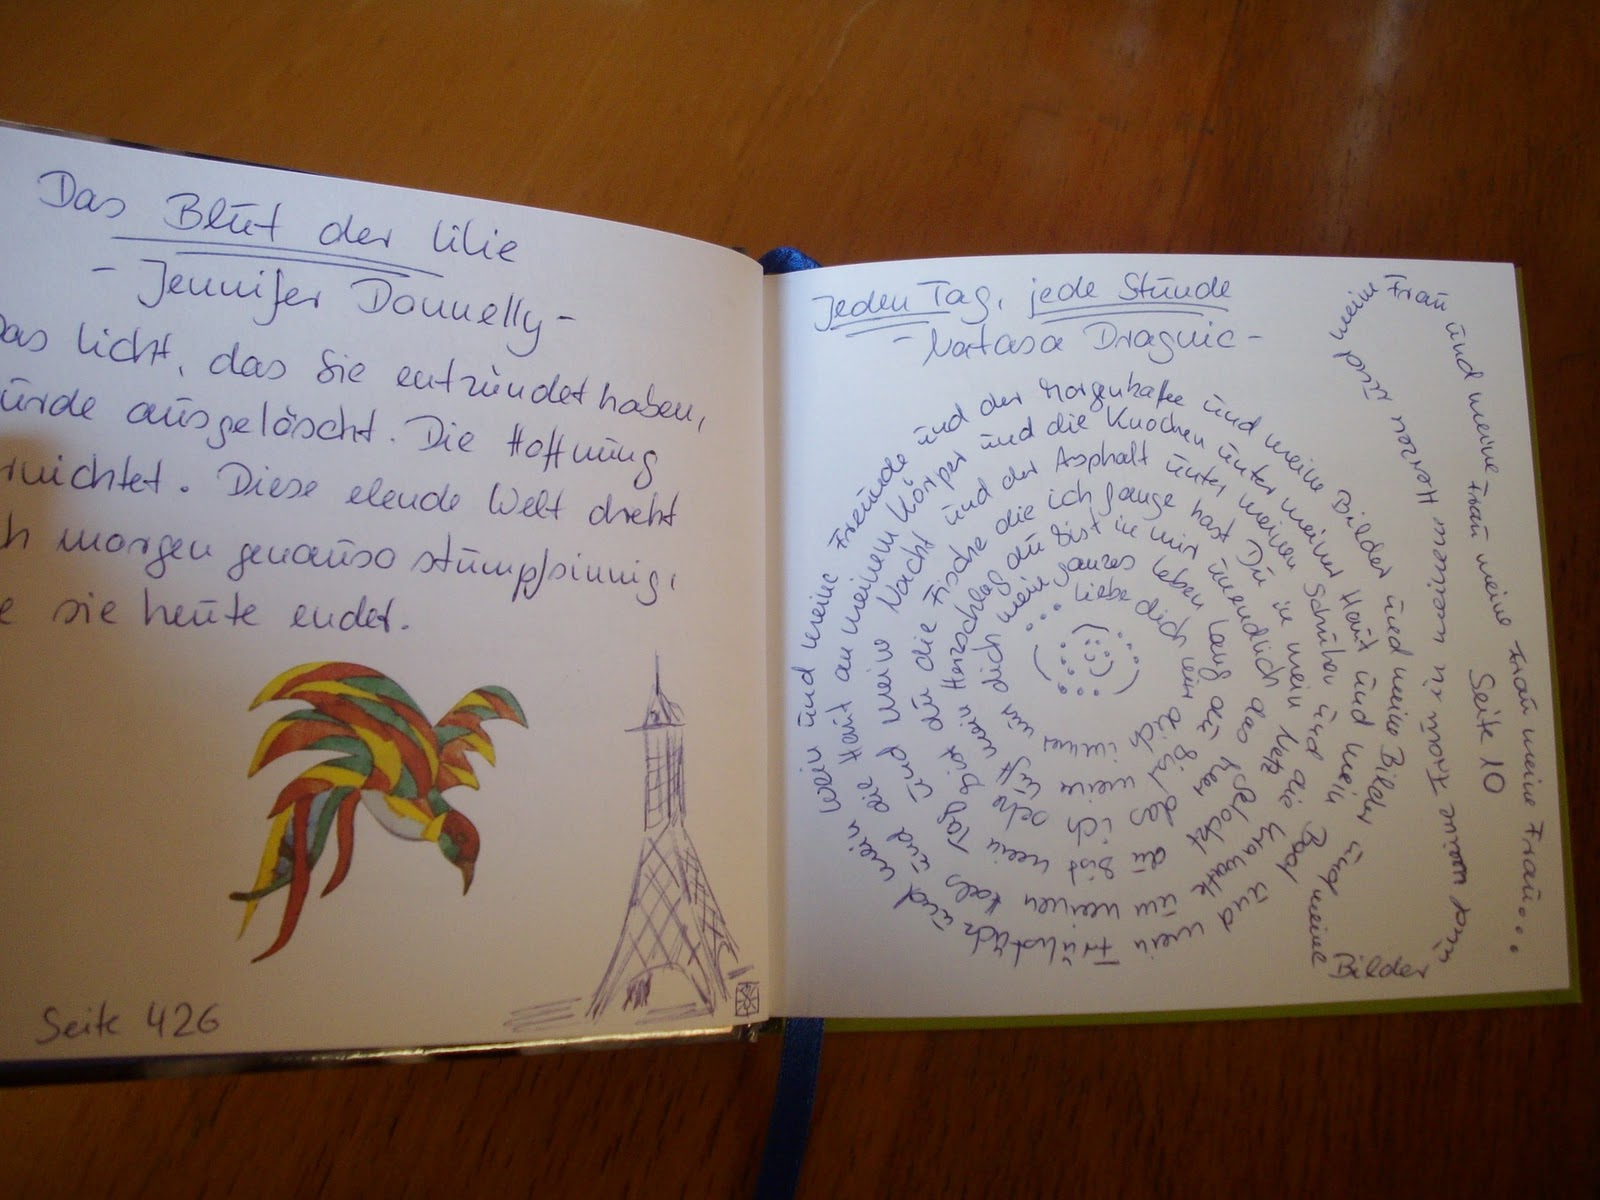 Das Blut der Lilie
- Jennifer Donnelly -
Das Licht, das Sie entzündet haben,
ürde ausgelöscht. Die Hoffnung
rnichtet. Diese elende Welt dreht
ch morgen genauso stumpfsinnig,
e sie heute endet.
Seite 426
Jeden Tag, jede Stunde
- Natasa Dragnic -
Liebe dich
mein ganzes Leben lang
du bist in mir unendlich
die Fische die ich fange hast Du in mein Netz gelockt
du bist mein Tag und meine Nacht und der Asphalt unter meinen Schuhen und die Krawatte um meinen Hals und die Haut an meinem Körper und die Knochen unter meiner Haut und mein Boot und mein Frühstück und mein Wein und meine Freunde und der Morgenkaffee und meine Bilder und meine Bilder und meine Bilder
und meine Frau in meinem Herzen und meine Frau und meine Frau meine Frau meine Frau...
Seite 10